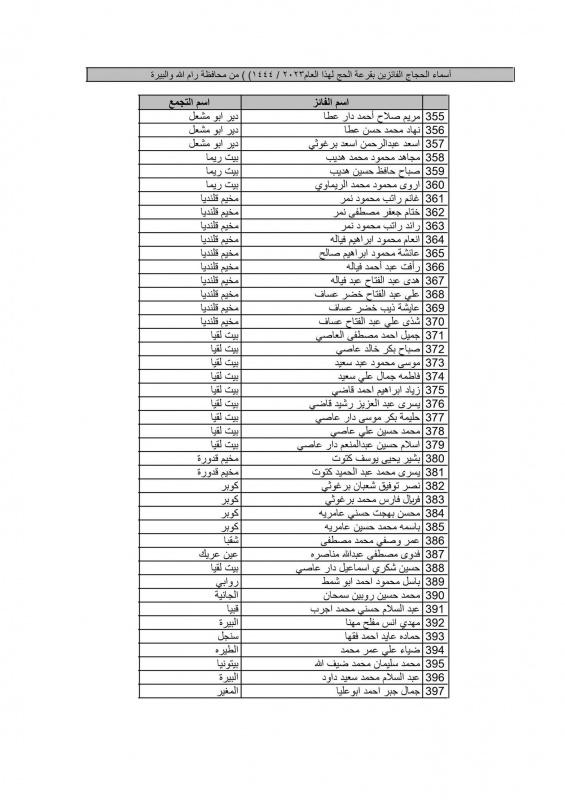 أسماء الحجاج الفائزين بقرعة الحج لهذا العام٢٠٢٣ / ١٤٤٤( ) من محافظة رام الله والبيرة
اسم الفائز اسم التجمع
355 مريم صلاح أحمد دار عطا دير ابو مشعل
356 نهاد محمد حسن عطا دير ابو مشعل
357 اسعد عبدالرحمن اسعد برغوثي دير ابو مشعل
358 مجاهد محمود محمد هديب بيت ريما
359 صباح حافظ حسين هديب بيت ريما
360 اروى محمود محمد الريماوي بيت ريما
361 غانم راتب محمود نمر مخيم قلنديا
362 ختام جعفر مصطفى نمر مخيم قلنديا
363 رائد راتب محمود نمر مخيم قلنديا
364 انعام محمود ابراهيم فياله مخيم قلنديا
365 عائشة محمود ابراهيم صالح مخيم قلنديا
366 رأفت عبد أحمد فياله مخيم قلنديا
367 هدى عبد الفتاح عبد فياله مخيم قلنديا
368 علي عبد الفتاح خضر عساف مخيم قلنديا
369 عايشة ذيب خضر عساف مخيم قلنديا
370 شذى علي عبد الفتاح عساف مخيم قلنديا
371 جميل احمد مصطفى العاصي بيت لقيا
372 صباح بكر خالد عاصي بيت لقيا
373 موسى محمود عبد سعيد بيت لقيا
374 فاطمه جمال علي سعيد بيت لقيا
375 زياد ابراهيم احمد قاضي بيت لقيا
376 يسرى عبد العزيز رشيد قاضي بيت لقيا
377 حليمة بكر موسى دار عاصي بيت لقيا
378 محمد حسين علي عاصي بيت لقيا
379 اسلام حسين عبدالمنعم دار عاصي بيت لقيا
380 بشير يحيى يوسف كتوت مخيم قدورة
381 يسرى محمد عبد الحميد كتوت مخيم قدورة
382 نصر توفيق شعبان برغوثي كوبر
383 فريال فارس محمد برغوثي كوبر
384 محسن بهجت حسني عامريه كوبر
385 باسمه محمد حسين عامريه كوبر
386 عمر وصفي محمد مصطفى شقبا
387 فدوى مصطفى عبدالله مناصره عين عريك
388 حسين شكري اسماعيل دار عاصي بيت لقيا
389 باسل محمود احمد ابو شمط روابي
390 محمد حسين روبين سمحان الجانية
391 عبد السلام حسني محمد اجرب قبيا
392 مهدي انس مفلح مهنا البيرة
393 حماده عايد احمد فقها سنجل
394 ضياء علي عمر محمد الطيره
395 محمد سليمان محمد ضيف الله بيتونيا
396 عبد السلام محمد سعيد داود البيرة
397 جمال جبر احمد ابوعليا المغير